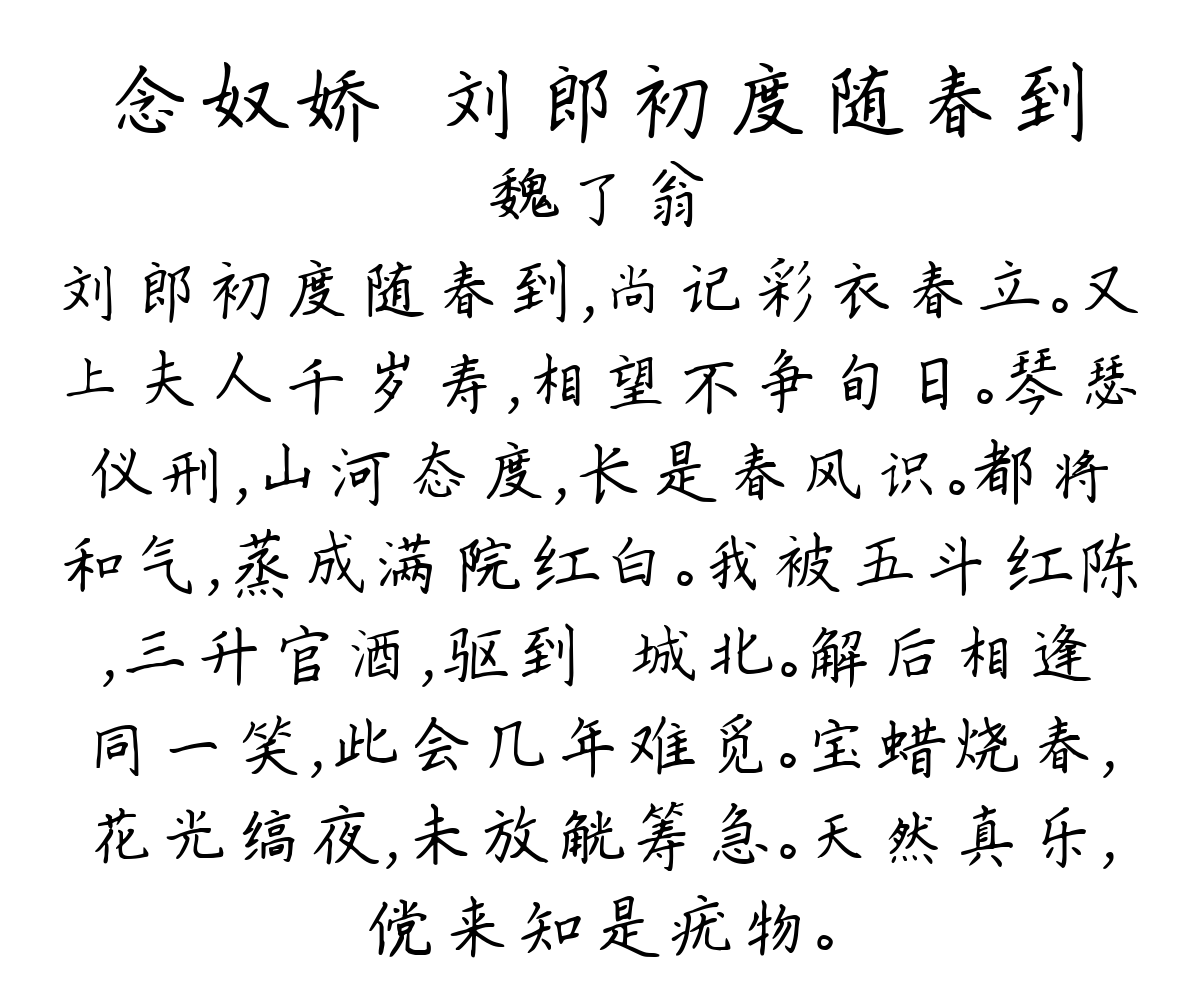 念奴娇 刘郎初度随春到
魏了翁
刘郎初度随春到,尚记彩衣春立。又
上夫人千岁寿,相望不争旬日。琴瑟
仪刑,山河态度,长是春风识。都将
和气,蒸成满院红白。我被五斗红陈
,三升官酒,驱到 城北。解后相逢
同一笑,此会几年难觅。宝蜡烧春,
花光缟夜,未放觥筹急。天然真乐,
傥来知是疣物。